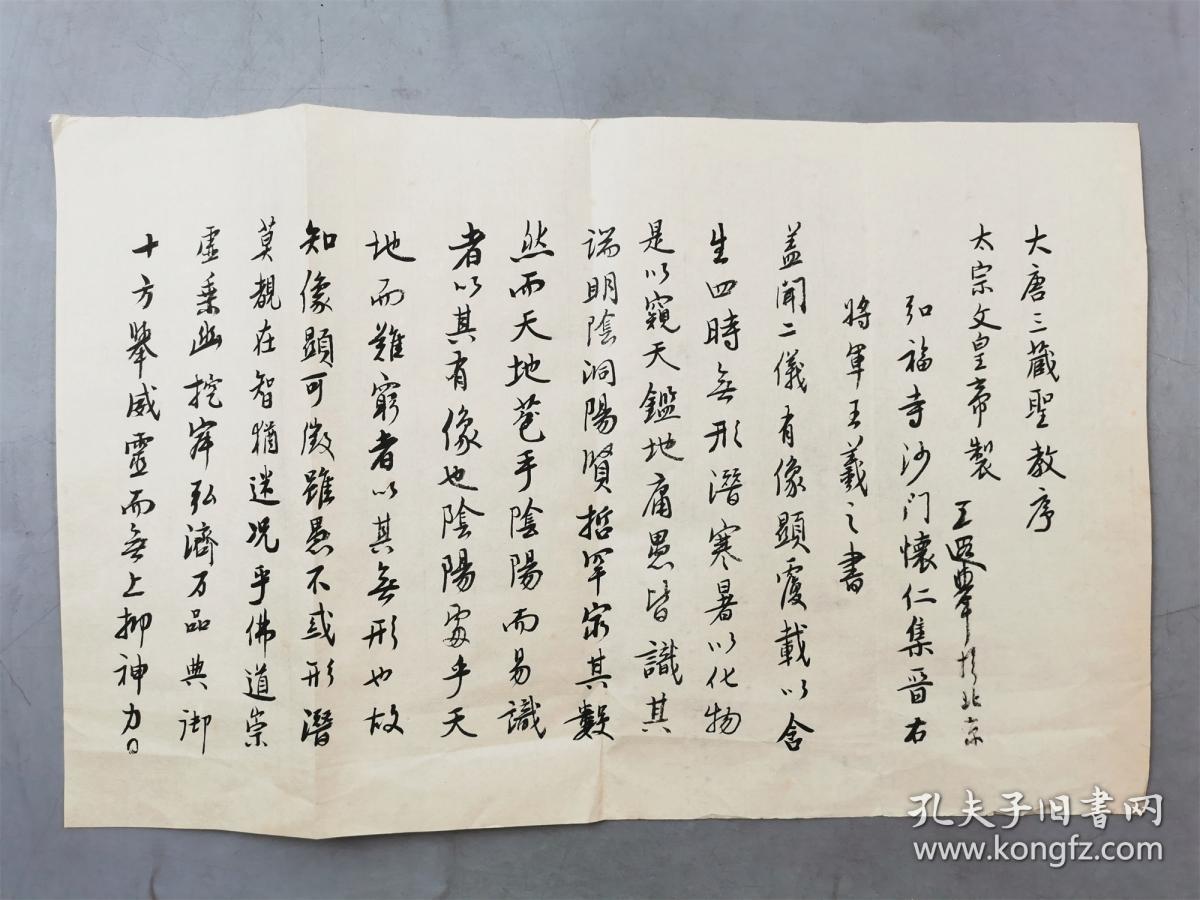 大唐三藏聖教序
太宗文皇帝製
王 於北京
弘福寺沙门懷仁集晉右
將軍王羲之書
盖聞二儀有像顯覆載以含
生四時無形潛寒暑以化物
是以窺天鑑地庸愚皆識其
端明陰洞陽賢哲罕窮其數
然而天地苞乎陰陽而易識
者以其有像也陰陽處乎天
地而難窮者以其無形也故
知像顯可徵雖愚不惑形潛
莫覩在智猶迷况乎佛道崇
虛乘幽控寂弘濟万品典御
十方舉威靈而無上抑神力
孔夫子旧书网
www.kongfz.com